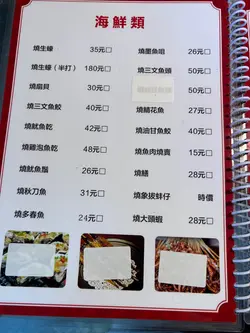 海鮮類
燒生蠔 35元□
燒生蠔（半打） 180元□
燒扇貝 30元□
燒三文魚鮫 40元□
燒魷魚乾 42元□
燒雞泡魚乾 48元□
燒魷魚鬚 26元□
燒秋刀魚 31元□
燒多春魚 24元□
燒墨魚咀 26元□
燒三文魚頭 50元□
50元□
燒鯖花魚 27元□
燒油甘魚鮫 40元□
燒魚肉燒賣 15元□
燒鱔 28元□
燒象拔蚌仔 時價
燒大頭蝦 28元□